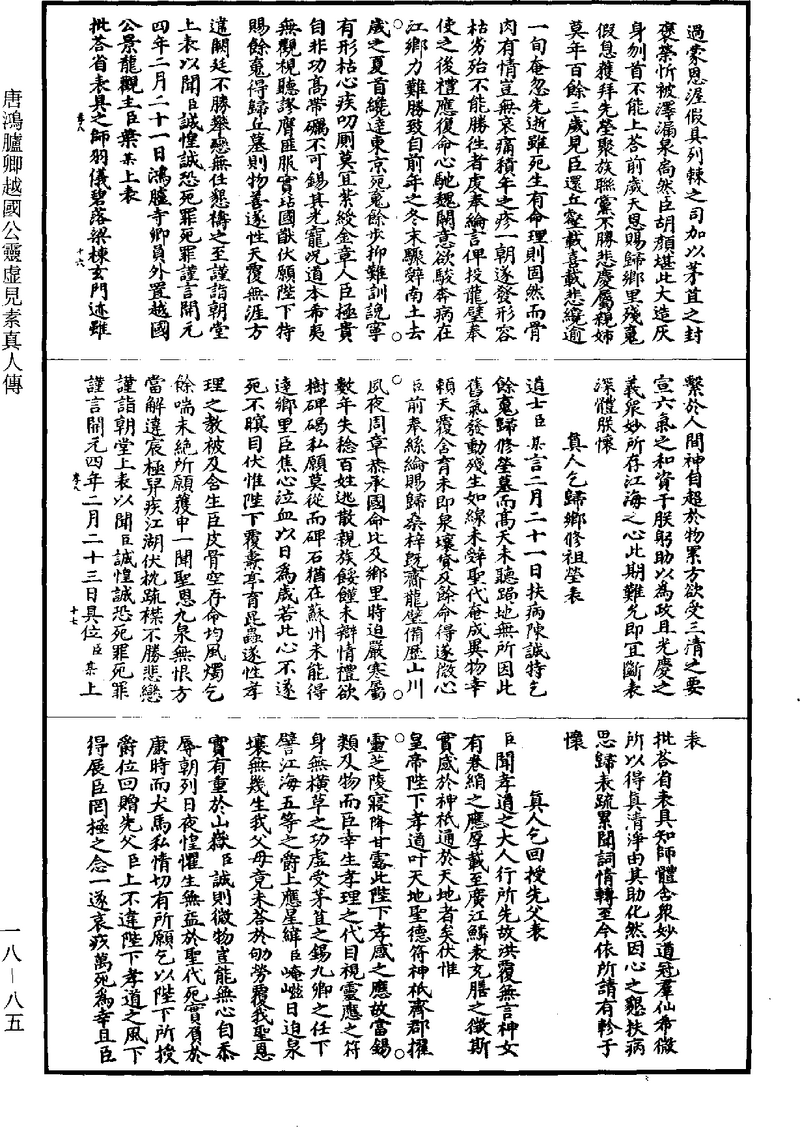 過蒙恩渥假具列棘之司加以茅苴之封
褒榮忻被澤漏泉扃然臣胡顏堪此大造灰
身刎首不能上荅前歲天恩賜歸鄉里殘䰟
假息獲拜先塋聚族聯黨不勝悲慶屬親姉
莫年百餘三歲見臣還丘壑載喜載悲纔逾
一旬奄忽先逝雖死生有命理則固然而骨
肉有情豈無哀痛積年之疹一朝遂發形容
枯劣殆不能勝往者虔奉綸言俾投龍璧奉
使之後禮應復命心馳魏闕意欲駿奔病在
江鄉力難勝致自前年之冬末驟辤南土去
歲之夏首纔達東京宛䰟餘步抑難訓說寧
有形枯心疾叨厠莫宜紫綬金章人臣極貴
自非功高帶礪不可錫其光寵況道本希夷
無觀視聽謬膺匪服實玷國猷伏願陛下特
賜餘䰟得歸丘墓則物善遂性天覆無涯方
違闕廷不勝攀戀無任懇禱之至謹詣朝堂
上表以聞臣誠惶誠恐死罪死罪謹言開元
四年二月二十一日鴻臚寺卿員外置越國
公景龍觀主臣葉某上表
批荅省表具之師羽儀碧落梁棟玄門迹雖
孝八
十六
繫於人間神自超於物累方欲受三清之要
宣六氣之和資于朕躬助以為政且光慶之
義衆妙所存江海之心此期難允即宜斷表
深體朕懷
真人乞歸鄉修祖塋表
道士臣某言二月二十一日扶病陳誠特乞
餘䰟歸修塋墓而高天未聽蹐地無所因此
舊氣發動殘生如線未辤聖代奄成異物幸
頼天覆含育未即泉壤貸及餘命得遂微心
臣前奉絲綸賜歸桑梓既齎龍璧備歷山川
夙夜周章恭承國命比及鄉里時迫嚴寒屬
數年失稔百姓逃散親族餒饉未辯情禮欲
樹碑碣私願莫從而碑石猶在蘇州未能得
達鄉里臣焦心泣血以日為歲若此心不遂
死不瞑目伏惟陛下覆燾亭育昆蟲遂性孝
理之教被及含生臣皮骨空存命均風燭乞
餘喘未絶所願獲申一聞聖恩九泉無恨方
當解違宸極舁疾江湖伏枕疏襟不勝悲戀
謹詣朝堂上表以聞臣誠惶誠恐死罪死罪
謹言開元四年二月二十三日具位臣某上
孝八
十七
表
批荅省表具知師體含衆妙道冠羣仙希微
所以得真清淨由其助化然因心之懇扶病
思歸表疏累聞詞情轉至今依所請有軫于
懷
真人乞回授先父表
臣聞孝道之大人行所先故洪覆無言神女
有卷綃之應厚載至廣江鱗表充膳之徵斯
實感於神祇通於天地者矣伏惟
皇帝陛下孝道叶天地聖德符神祇齋郡擢
靈芝陵寢降甘露此陛下孝感之應故當錫
類及物而臣幸生孝理之代目視靈應之符
身無橫草之功虛受茅苴之錫九卿之任下
譬江海五等之爵上應星緯臣崦嵫日迫泉
壤無幾生我父母竟未荅於劬勞覆我聖恩
實有重於山嶽臣誠則微物豈能無心自忝
辱朝列日夜惶懼生無益於聖代死實負於
康時而犬馬私情切有所願乞以陛下所授
爵位回贈先父臣上不違陛下孝道之風下
得展臣罔極之念一遂哀疚萬死為幸且臣
唐鴻臚卿越國公靈虛見素真人傳
一八－八五